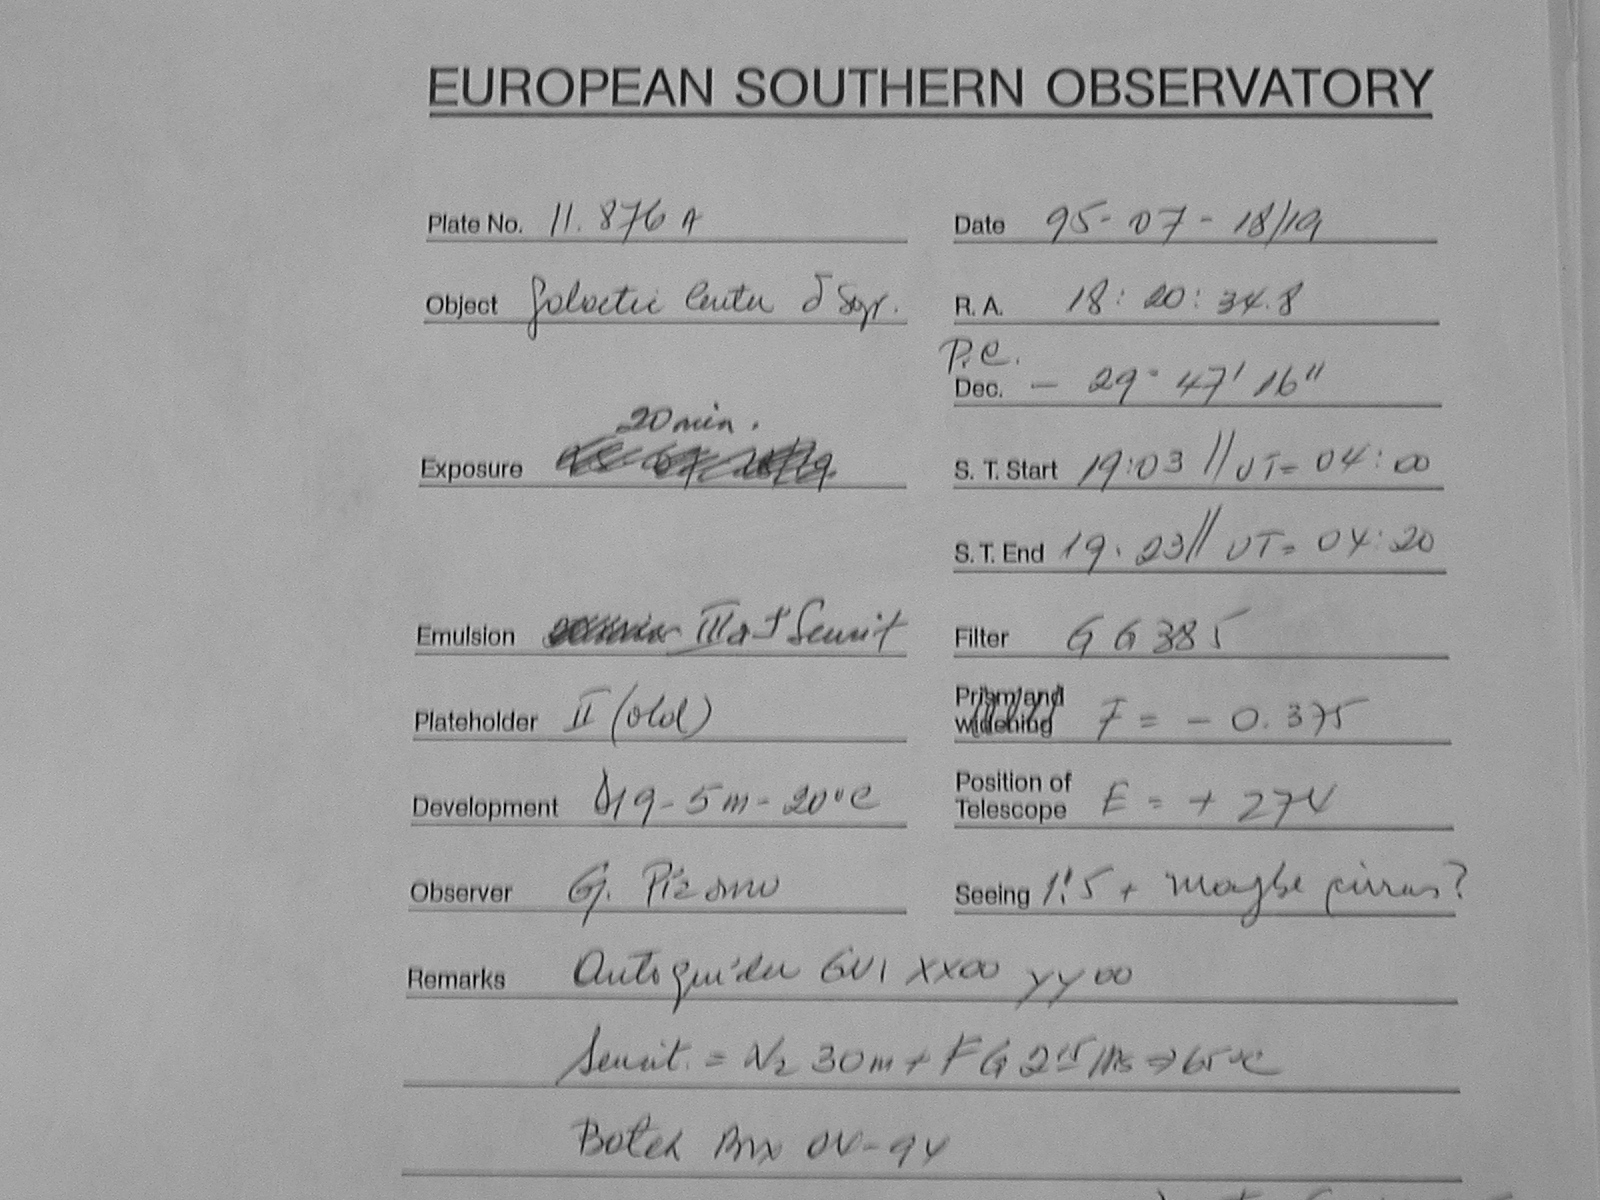 EUROPEAN SOUTHERN OBSERVATORY
Plate No. 11.876 A
Date 95-07-18/19
Object Galactic Center δ Sgr.
R. A. 18:20:34.8
P.C.
Dec. - 29° 47' 16"
20 min.
Exposure
S. T. Start 19:03 // UT= 04:00
S. T. End 19.23 // UT= 04:20
Emulsion IIIaJ Sensit
Filter GG385
Plateholder II (old)
Prism/and widening F = - 0.375
Development D19-5m-20°C
Position of Telescope E = + 274
Observer G. Pizarro
Seeing 1".5 + maybe cirrus?
Remarks Autoguider GV1 XX00 YY00
Sensit. = N2 30m + FG 2 Hs ⇒ 65°C
Batch Box 04-94